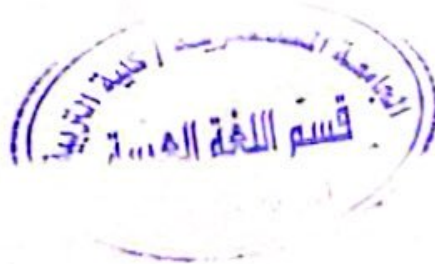 الجامعة المستنصرية / كلية التربية
قسم اللغة العربية